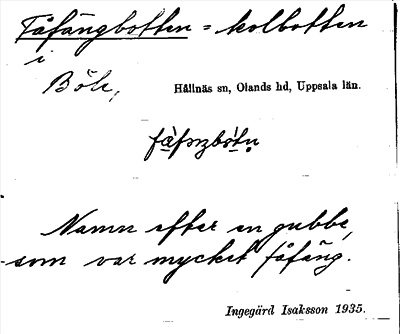 Fåfängbotten = kolbotten
i
Böle,
Hållnäs sn, Olands hd, Uppsala län.
Namn efter en gubbe,
som var mycket fåfäng.
Ingegärd Isaksson 1935.